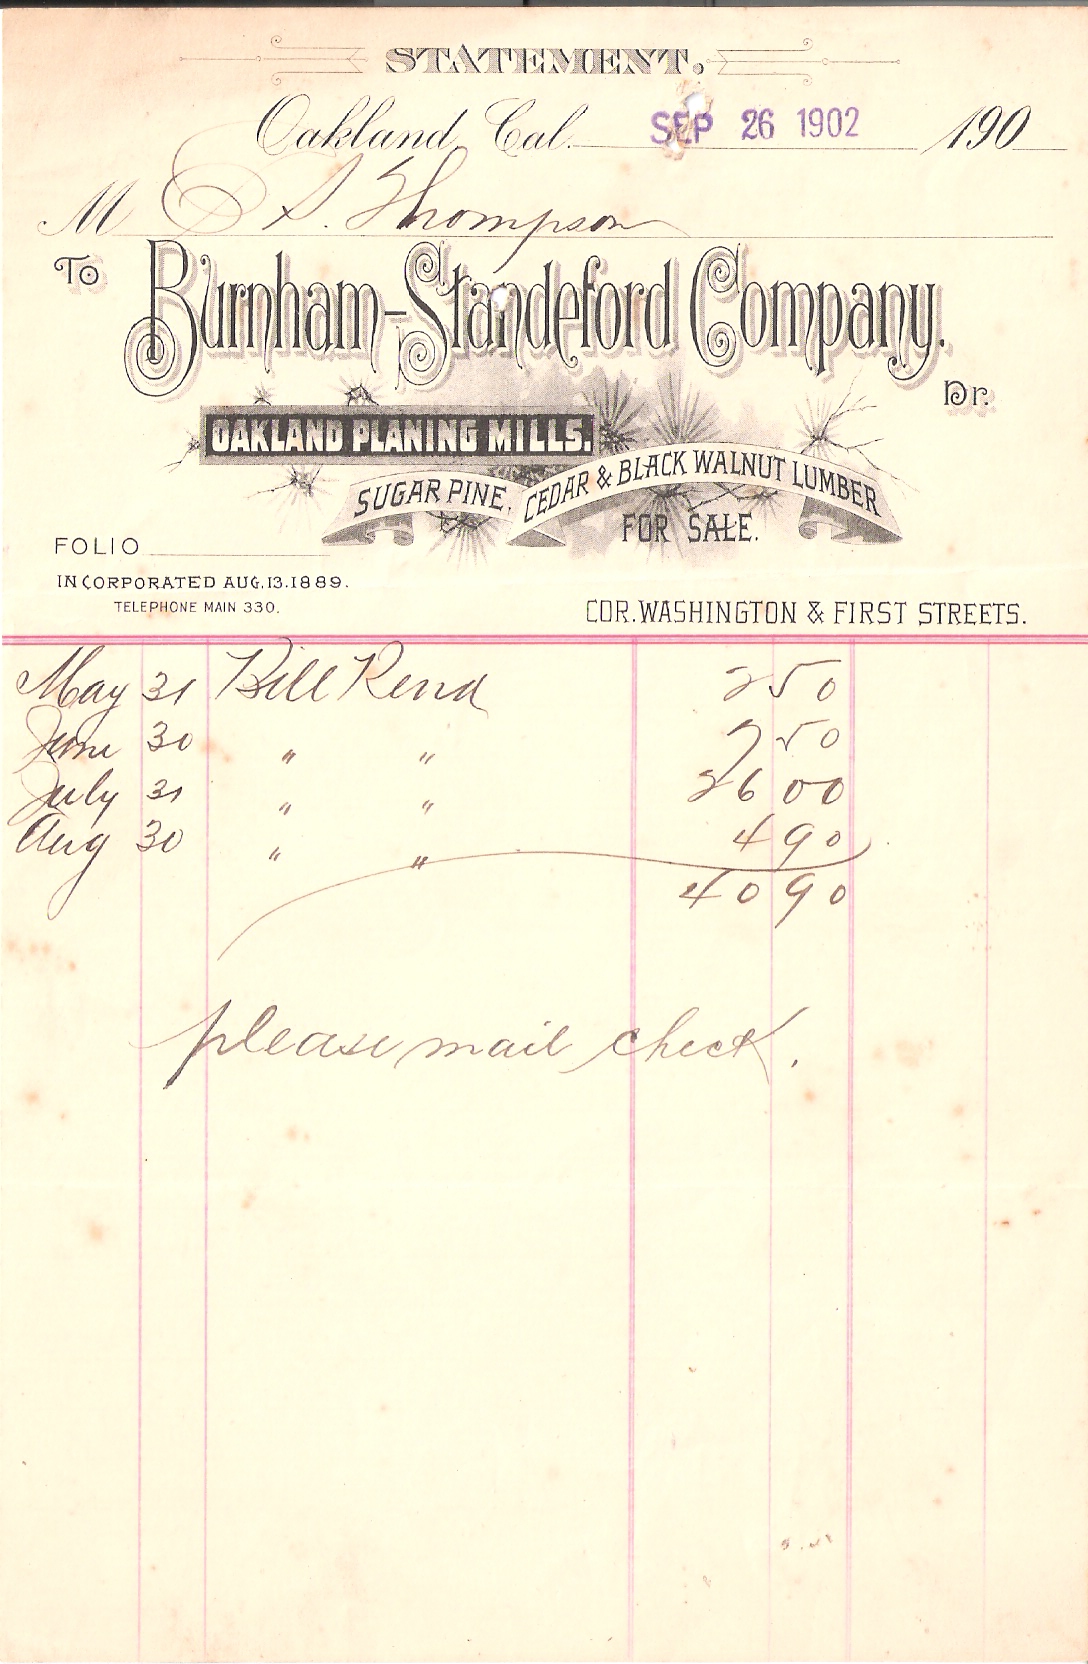 STATEMENT.
Oakland, Cal. SEP 26 1902 190
M Thompson
To Burnham-Standeford Company. Dr.
OAKLAND PLANING MILLS.
SUGAR PINE, CEDAR & BLACK WALNUT LUMBER
FOR SALE.
FOLIO
INCORPORATED AUG. 13. 1889.
TELEPHONE MAIN 330.
COR. WASHINGTON & FIRST STREETS.
May 31 Bill Rend 2 50
June 30 " " 7 50
July 31 " " 26 00
Aug 30 " " 4 90
40 90
please mail check.